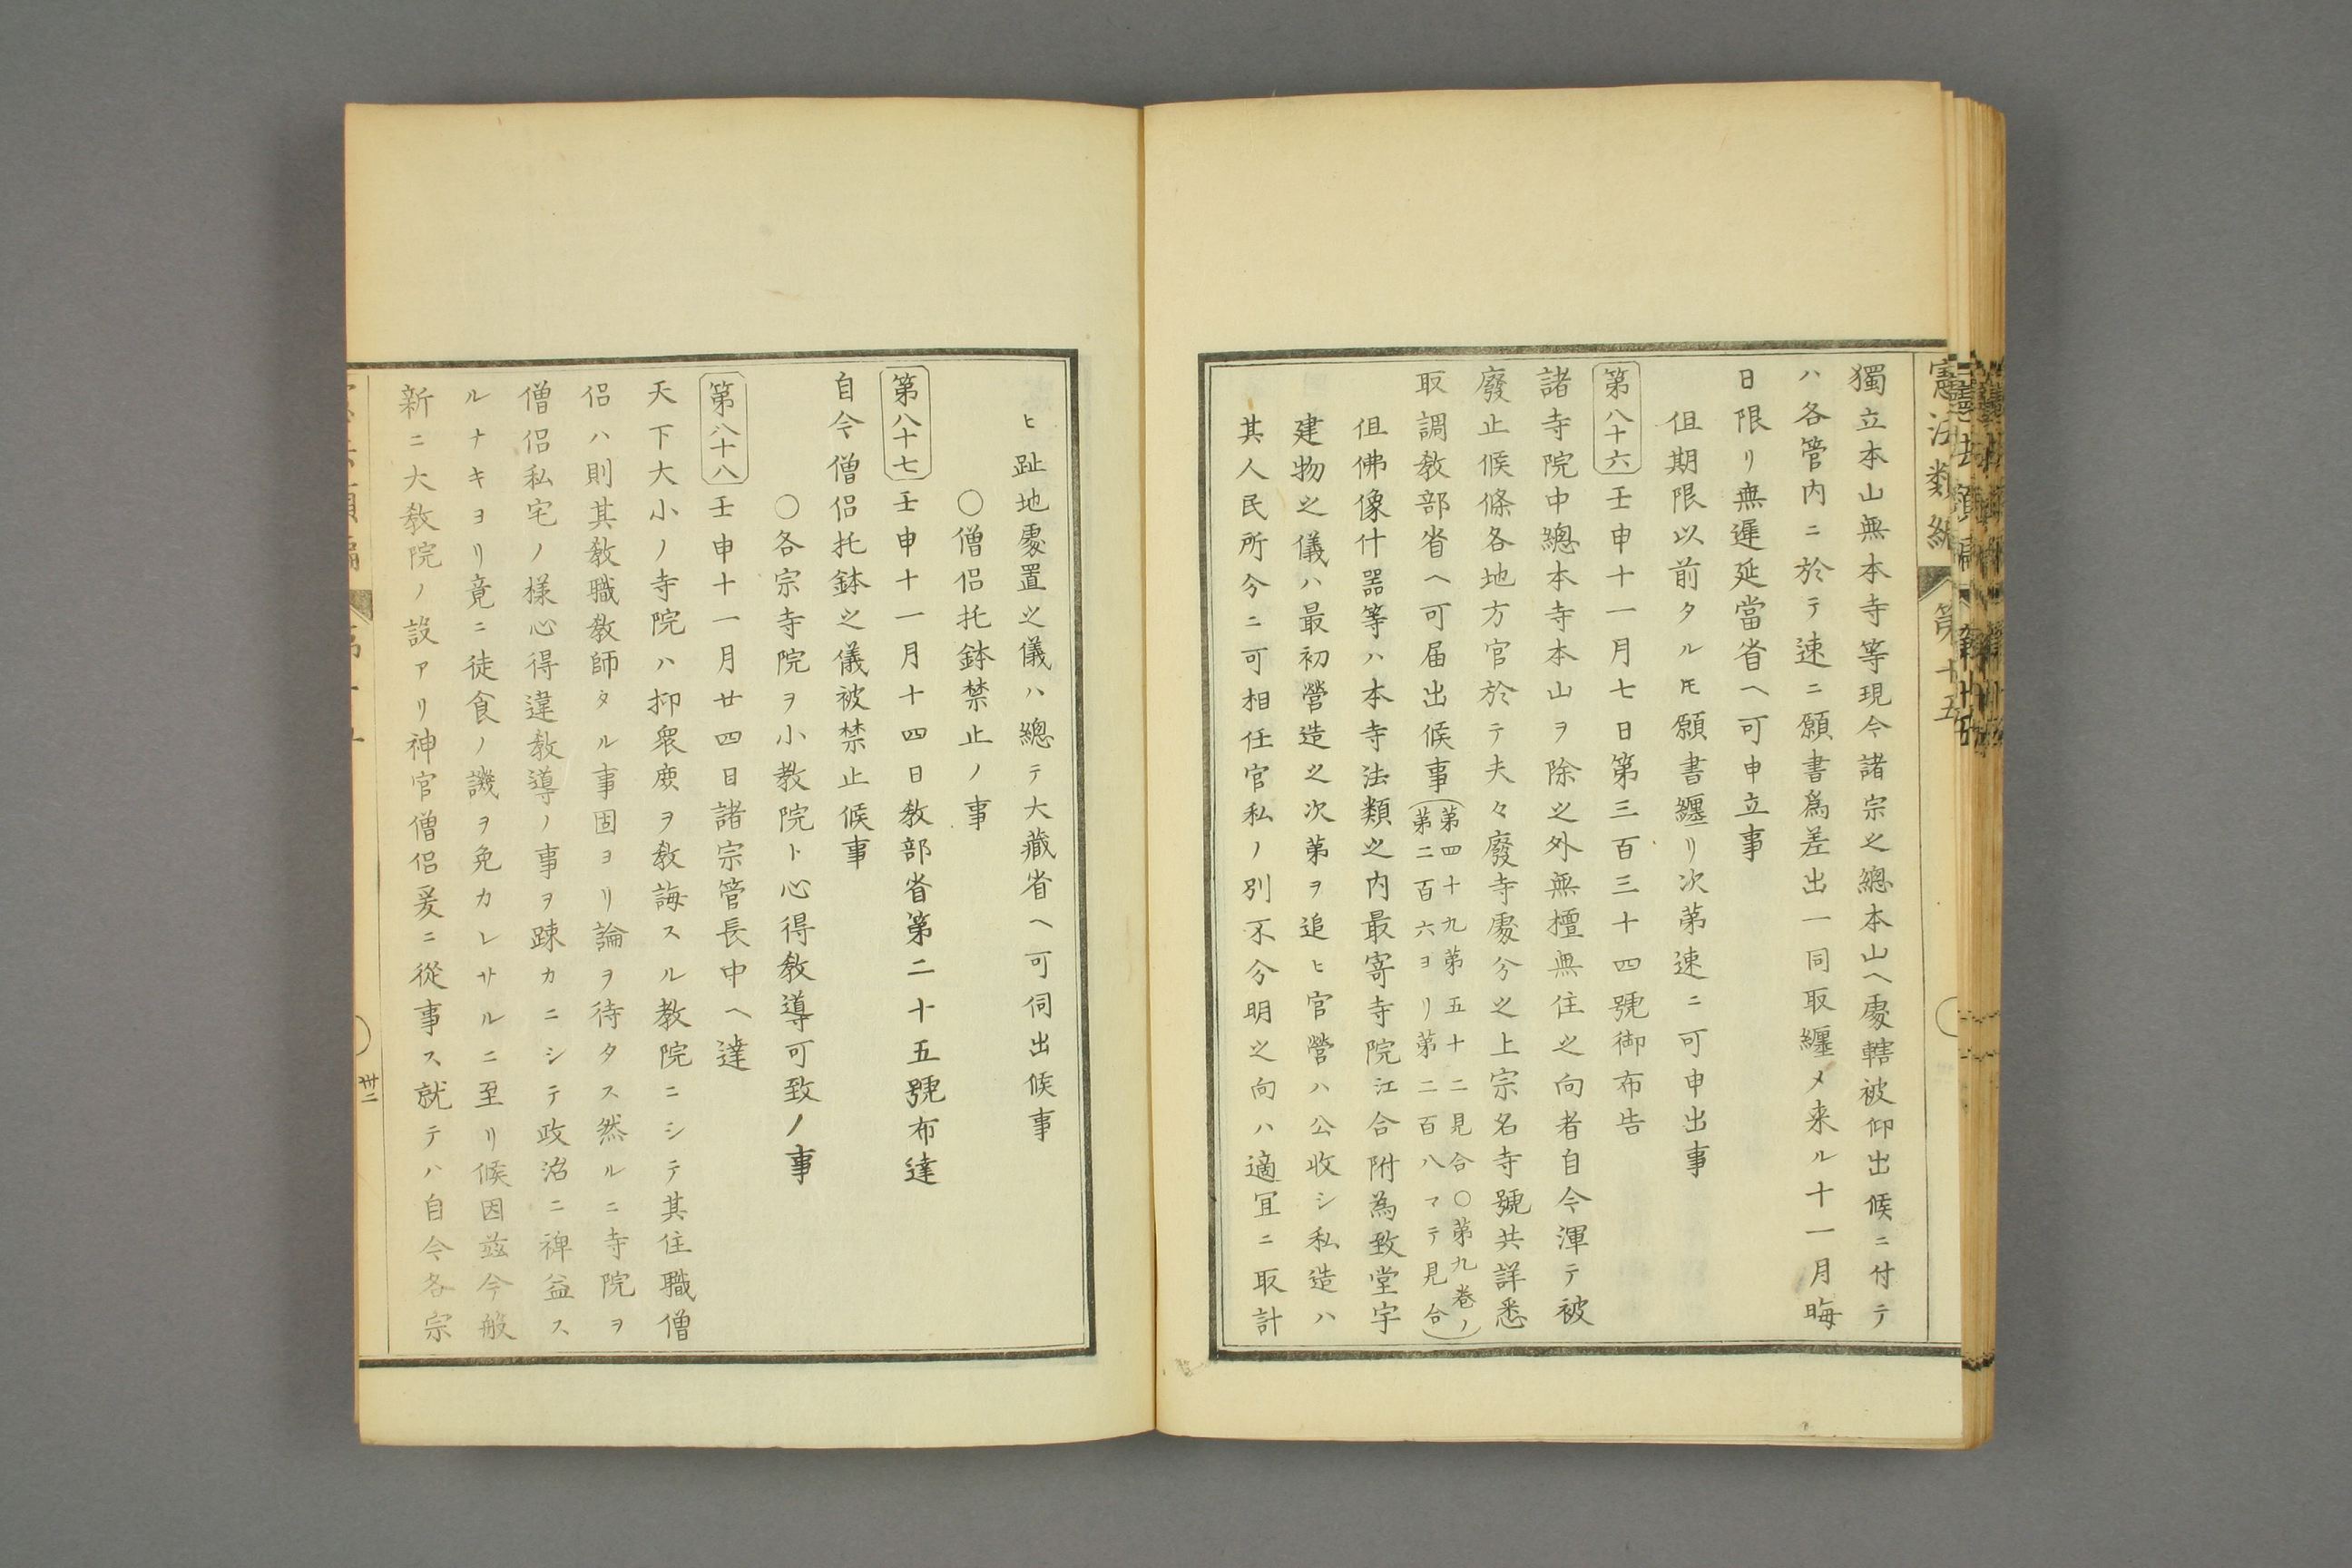 獨立本山無本寺等現今諸宗之總本山ヘ處轄被仰出候ニ付テ
ハ各管内ニ於テ速ニ願書爲差出一同取纒メ来ル十一月晦
日限リ無遲延當省ヘ可申立事
但期限以前タルモ願書纒リ次第速ニ可申出事
第八十六 壬申十一月七日第三百三十四號御布告
諸寺院中總本寺本山ヲ除之外無檀無住之向者自今渾テ被
廢止候條各地方官於テ夫々廢寺處分之上宗名寺號共詳悉
取調敎部省ヘ可届出候事(第四十九第五十二見合〇第九卷ノ
第二百六ヨリ第二百八マテ見合)
但佛像什器等ハ本寺法類之内最寄寺院江合附為致堂宇
建物之儀ハ最初營造之次第ヲ追ヒ官營ハ公收シ私造ハ
其人民所分ニ可相任官私ノ別不分明之向ハ適宜ニ取計
ヒ趾地處置之儀ハ總テ大藏省ヘ可伺出候事
〇僧侶托鉢禁止ノ事
第八十七 壬申十一月十四日敎部省第二十五號布達
自今僧侶托鉢之儀被禁止候事
〇各宗寺院ヲ小敎院ト心得敎導可致ノ事
第八十八 壬申十一月廿四日諸宗管長中ヘ達
天下大小ノ寺院ハ抑衆庶ヲ敎誨スル敎院ニシテ其住職僧
侶ハ則其敎職敎師タル事固ヨリ論ヲ待タス然ルニ寺院ヲ
僧侶私宅ノ樣心得違敎導ノ事ヲ踈カニシテ政治ニ裨益ス
ルナキヨリ竟ニ徒食ノ譏ヲ免カレサルニ至リ候因茲今般
新ニ大敎院ノ設アリ神官僧侶爰ニ從事ス就テハ自今各宗
卅二